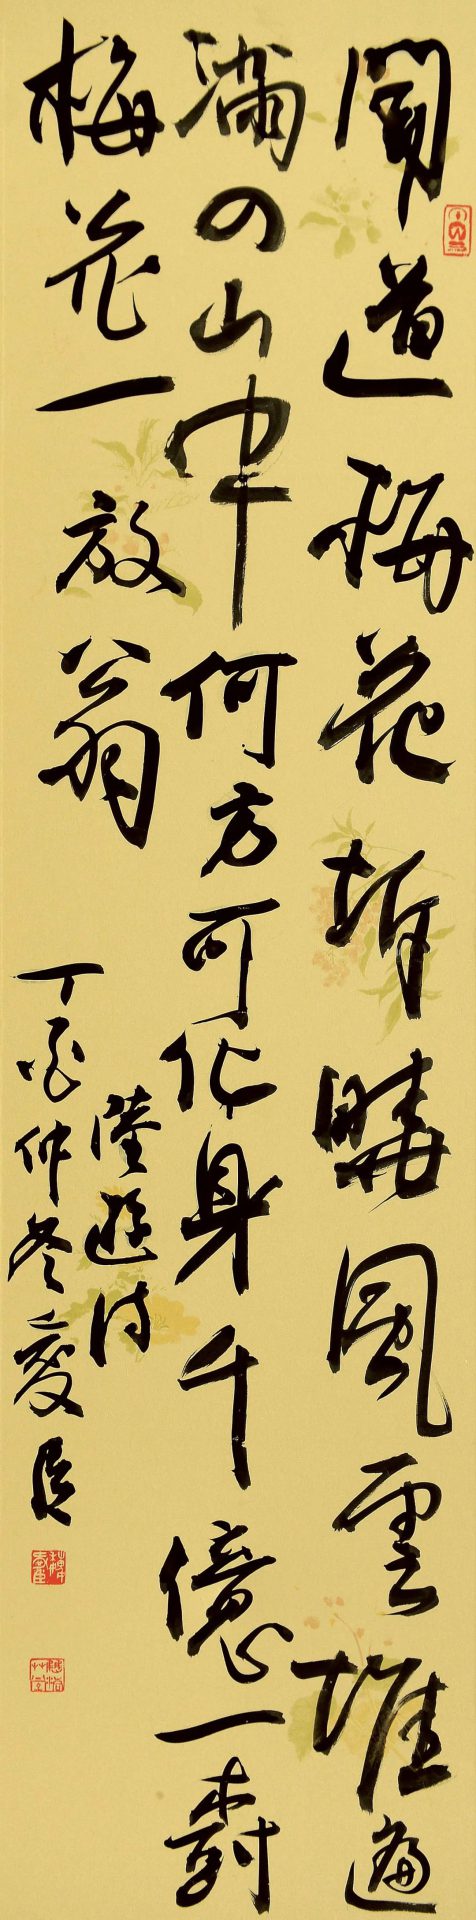 聞道梅花坼曉風雲堆遍
滿四山中何方可化身千億一樹
梅花一放翁
陸遊詩
丁酉仲冬